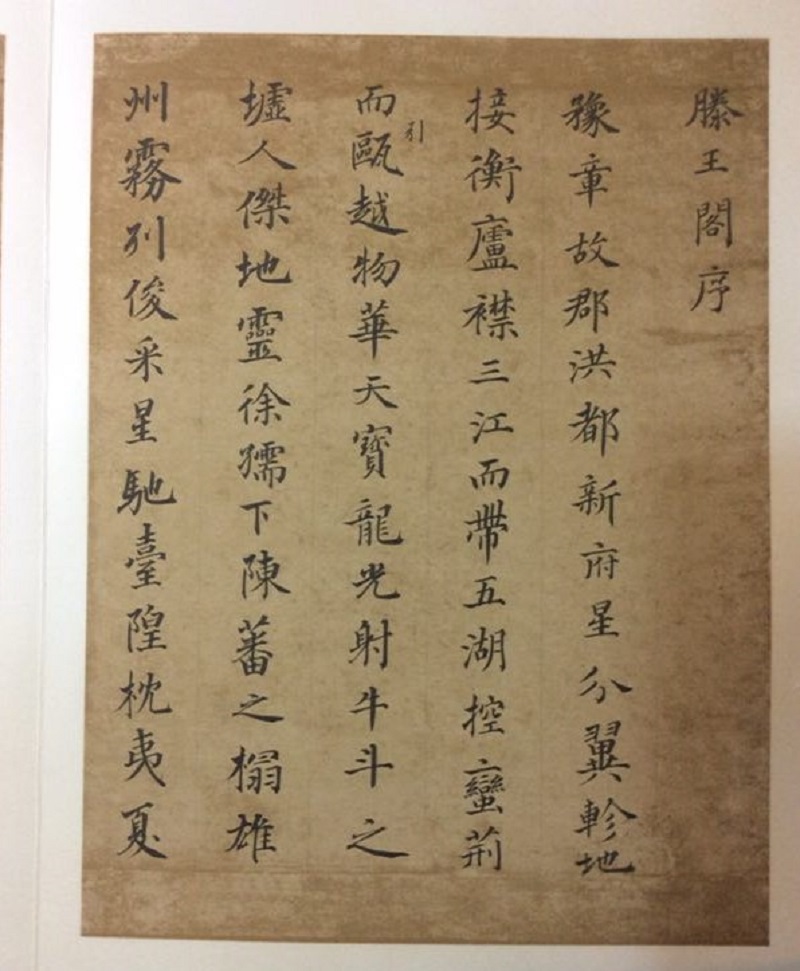 滕王閣序
豫章故郡洪都新府星分翼軫地
接衡廬襟三江而帶五湖控蠻荆
而引甌越物華天寶龍光射牛斗之
墟人傑地靈徐孺下陳蕃之榻雄
州霧列俊采星馳臺隍枕夷夏